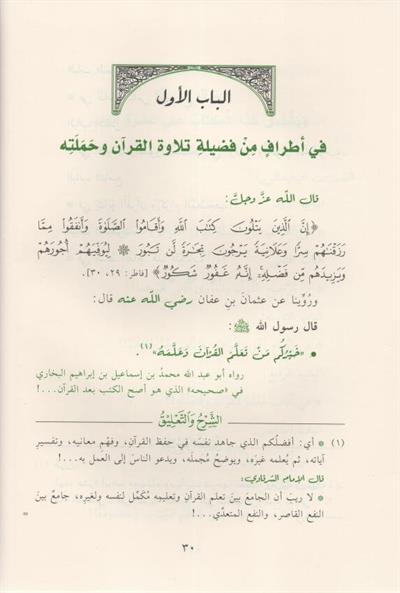 الباب الأول
في أطرافٍ مِنْ فضيلةِ تلاوة القرآن وحَمَلَتِه
قال اللّه عزَّ وجلَّ:
﴿إِنَّ ٱلَّذِينَ يَتْلُونَ كِتَٰبَ ٱللَّهِ وَأَقَامُوا۟ ٱلصَّلَوٰةَ وَأَنفَقُوا۟ مِمَّا
رَزَقْنَٰهُمْ سِرًّا وَعَلَانِيَةً يَرْجُونَ تِجَٰرَةً لَّن تَبُورَ ۞ لِيُوَفِّيَهُمْ أُجُورَهُمْ
وَيَزِيدَهُم مِّن فَضْلِهِۦٓ إِنَّهُۥ غَفُورٌ شَكُورٌ﴾ [فاطر: ٢٩، ٣٠].
ورُوِّينا عن عثمانَ بنِ عفان رضي اللّه عنه قال:
قال رسول اللّه ﷺ:
• «خَيْرُكُم مَنْ تَعَلَّمَ القُرْآنَ وَعَلَّمَهُ»(١).
رواه أبو عبد اللّه محمدُ بن إسماعيل بن إبراهيم البخاري
في «صحيحه» الذي هو أصح الكتب بعد القرآن...!
الشَّرْحُ وَالتَّعْلِيْقُ
(١) * أي: أفضلُكم الذي جاهد نفسَه في حفظ القرآن، وفهمِ معانيه، وتفسيرِ
آياته، ثم يُعلمه غيرَه، ويوضحُ مُجملَه، ويدعو الناسَ إلى العمل به...!
قال الإمام الشرقاوي:
* لا ريب أن الجامعَ بينَ تعلم القرآن وتعليمه مُكمِّل لنفسه ولغيره، جامعٌ بينَ
النفع القاصر، والنفع المتعدِّي...!
=
٣٠